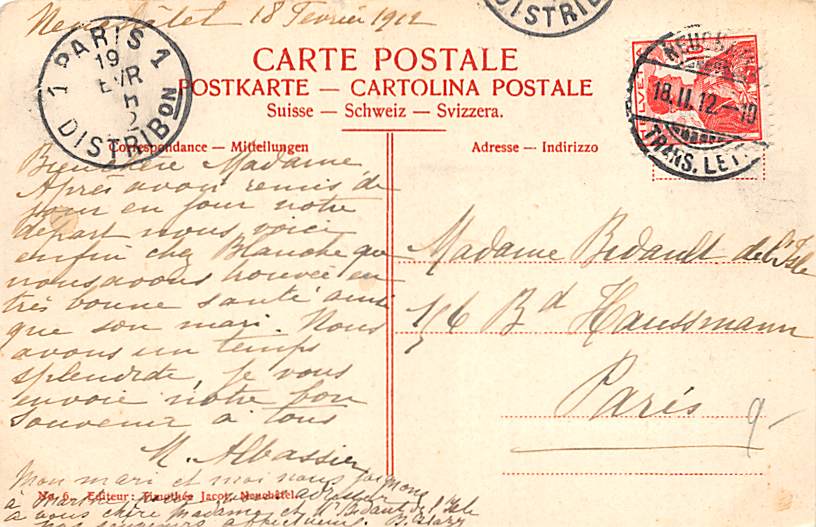 Neuchâtel 18 Février 1912
DISTRIB
PARIS 1
1
19
EVR
DISTRIBON
CARTE POSTALE
POSTKARTE — CARTOLINA POSTALE
Suisse — Schweiz — Svizzera.
HELVETIA
NEUCHATEL
18.II.12.–10
TRANS. LET.
Correspondance — Mitteilungen
Adresse — Indirizzo
Bien chère Madame
Après avoir remis de
jour en jour notre
départ nous voici
enfin chez Blanche que
nous avons trouvée en
très bonne santé ainsi
que son mari. Nous
avons un temps
splendide, je vous
envoie notre bon
souvenir à tous
M. Albassier
Madame Bidault de l'Isle
156 Bd Haussmann
Paris
9-
Mon mari et moi nous
No 6. Editeur: Timothée Jacot, Neuchâtel.
à vous chère Madame et Mr Bidault de l'Isle
nos souvenirs affectueux. B.